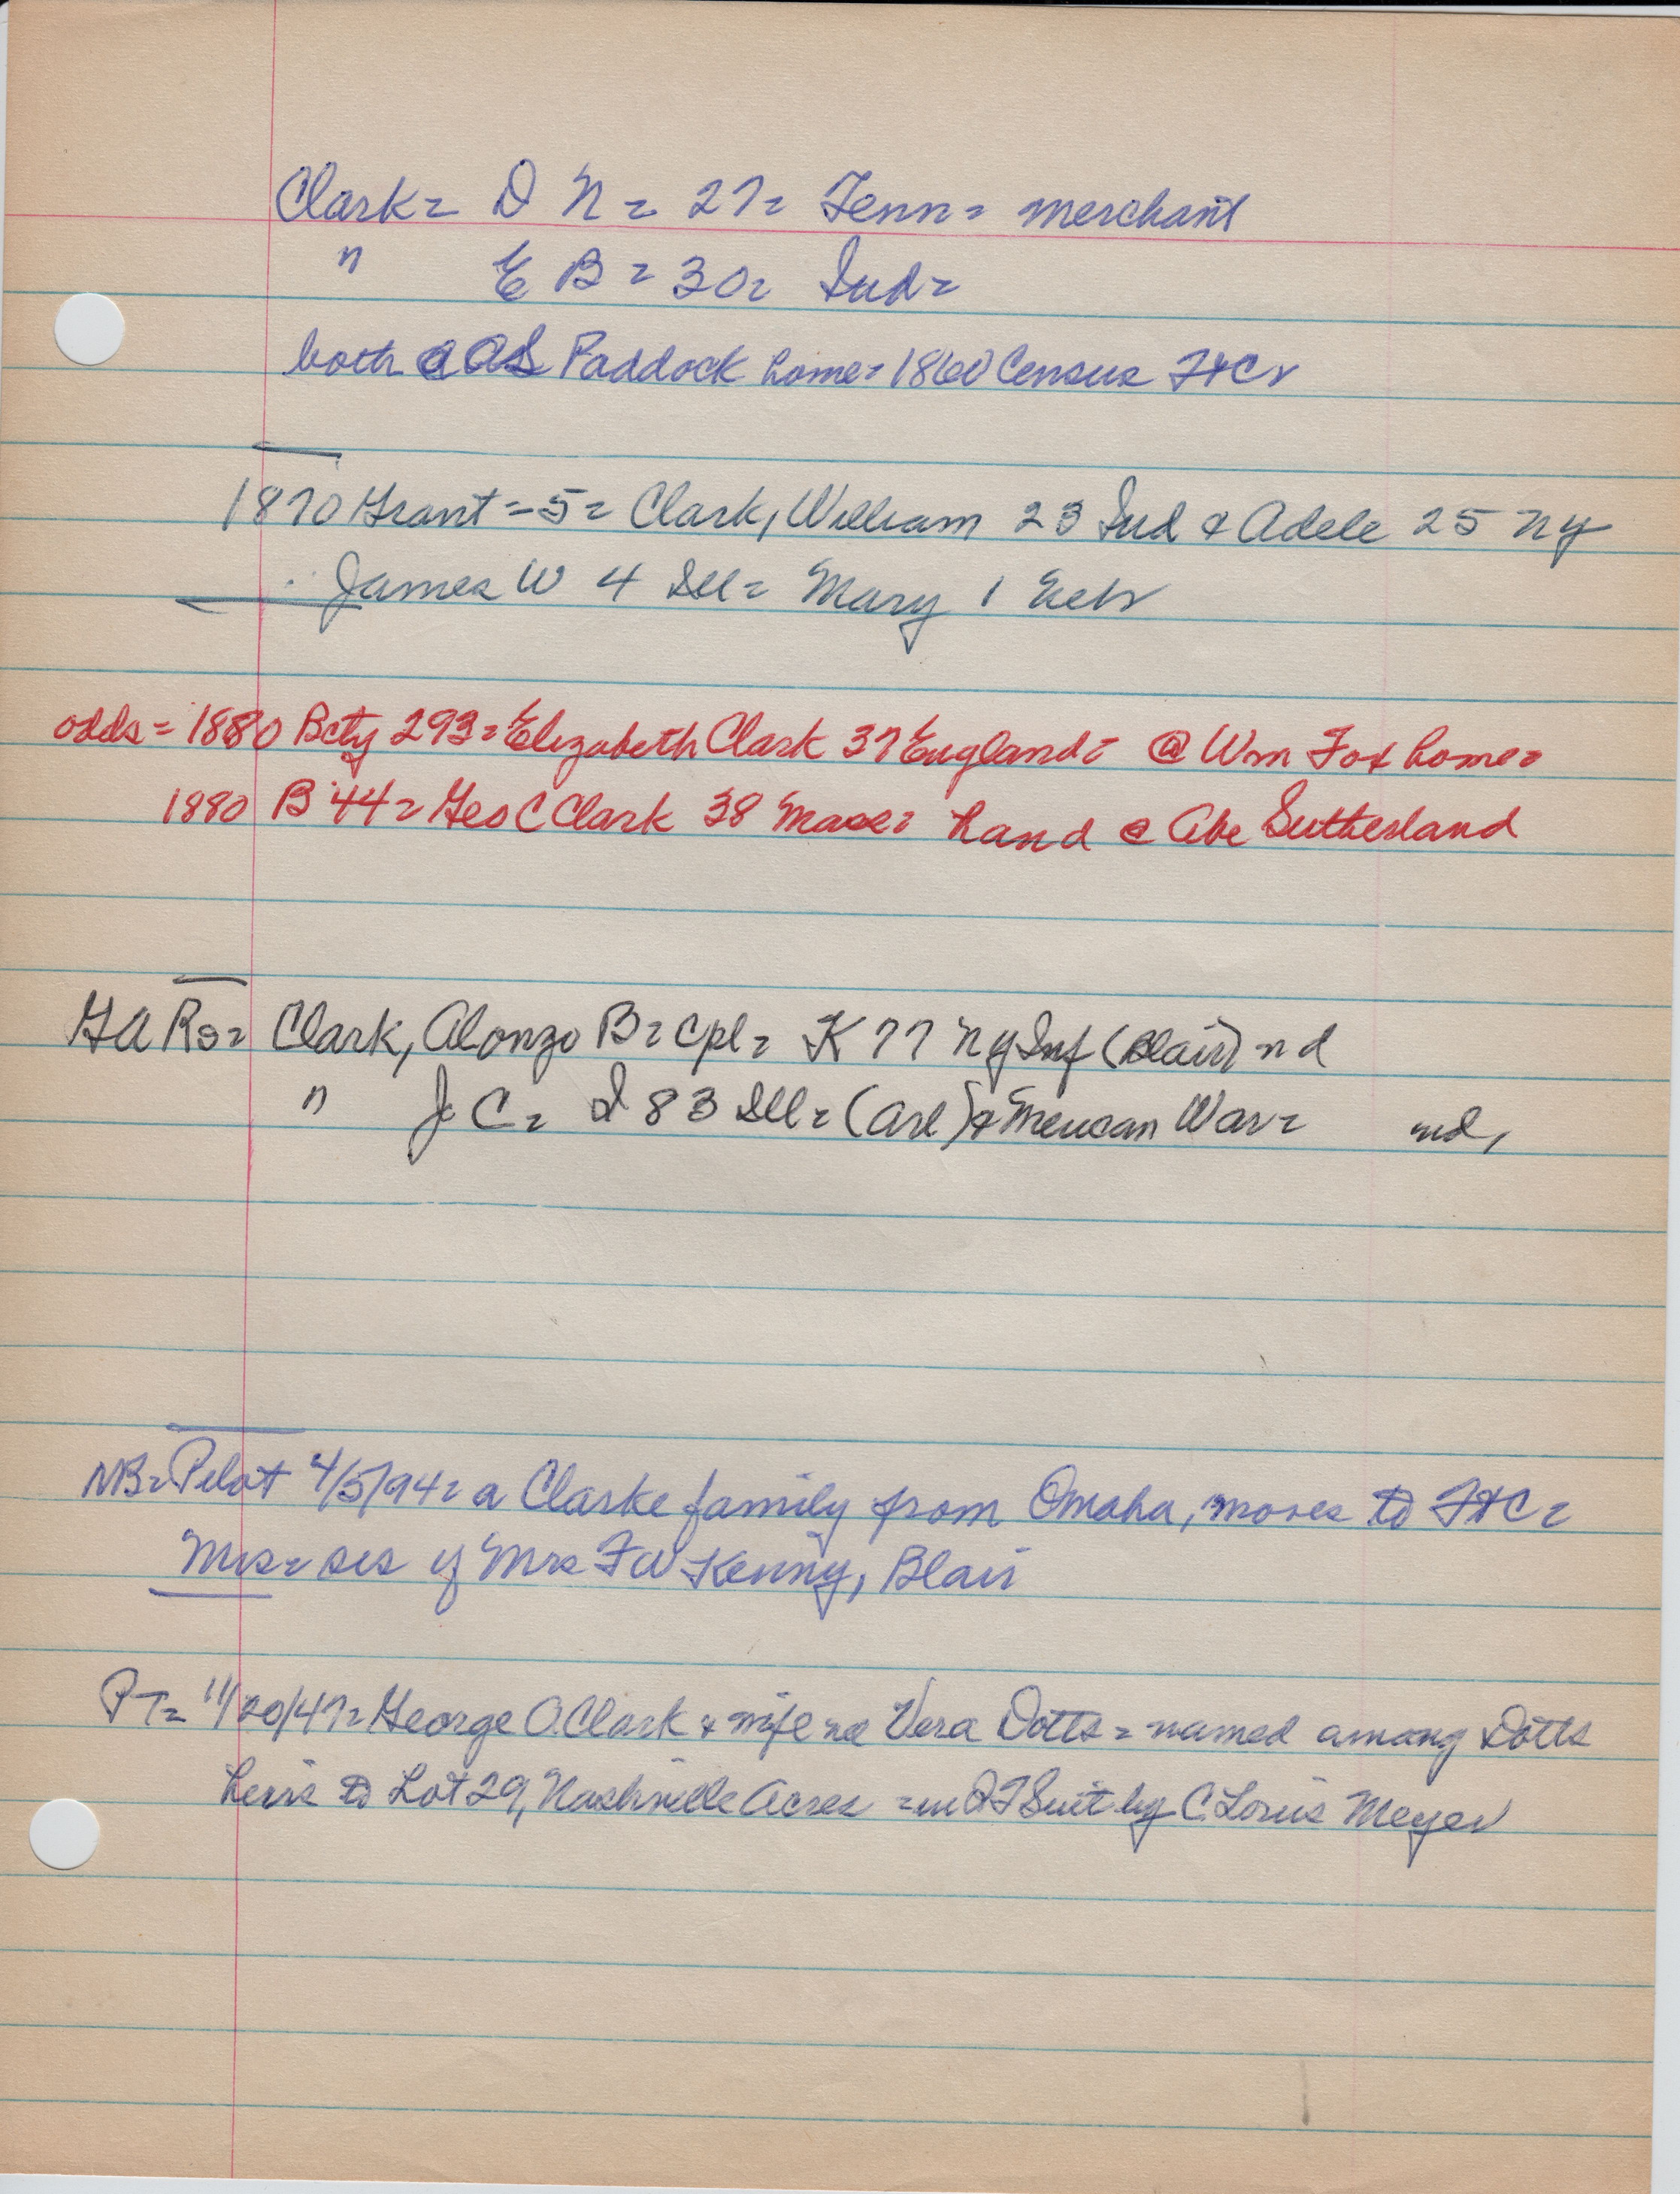 Clark = D N = 27 = Tenn = merchant
" E B = 30 = Ind =
both @ AS Paddock home = 1860 Census Ft C =
1870 Grant = 5 = Clark, William 23 Ind & Adele 25 NY
James W 4 Ill = Mary 1 Neb
odds = 1880 Bcty 293 = Elizabeth Clark 37 England = @ Wm Fox home =
1880 B 44 = Geo C Clark 38 Mass = hand @ Abe Sutherland
GARs = Clark, Alonzo B = cpl = K 77 NY Inf (Blair) nd
" J C = I 83 Ill = (Arl) & Mexican War = nd,
NB = Pilot 4/5/94 = a Clarke family from Omaha, moves to Ft C =
Mrs = sis of Mrs F W Kenny, Blair
PT = 11/20/47 = George O. Clark & wife nee Vera Dotts = named among Dotts
heirs to Lot 29, Nashville Acres = in QT Suit by C. Louis Meyer